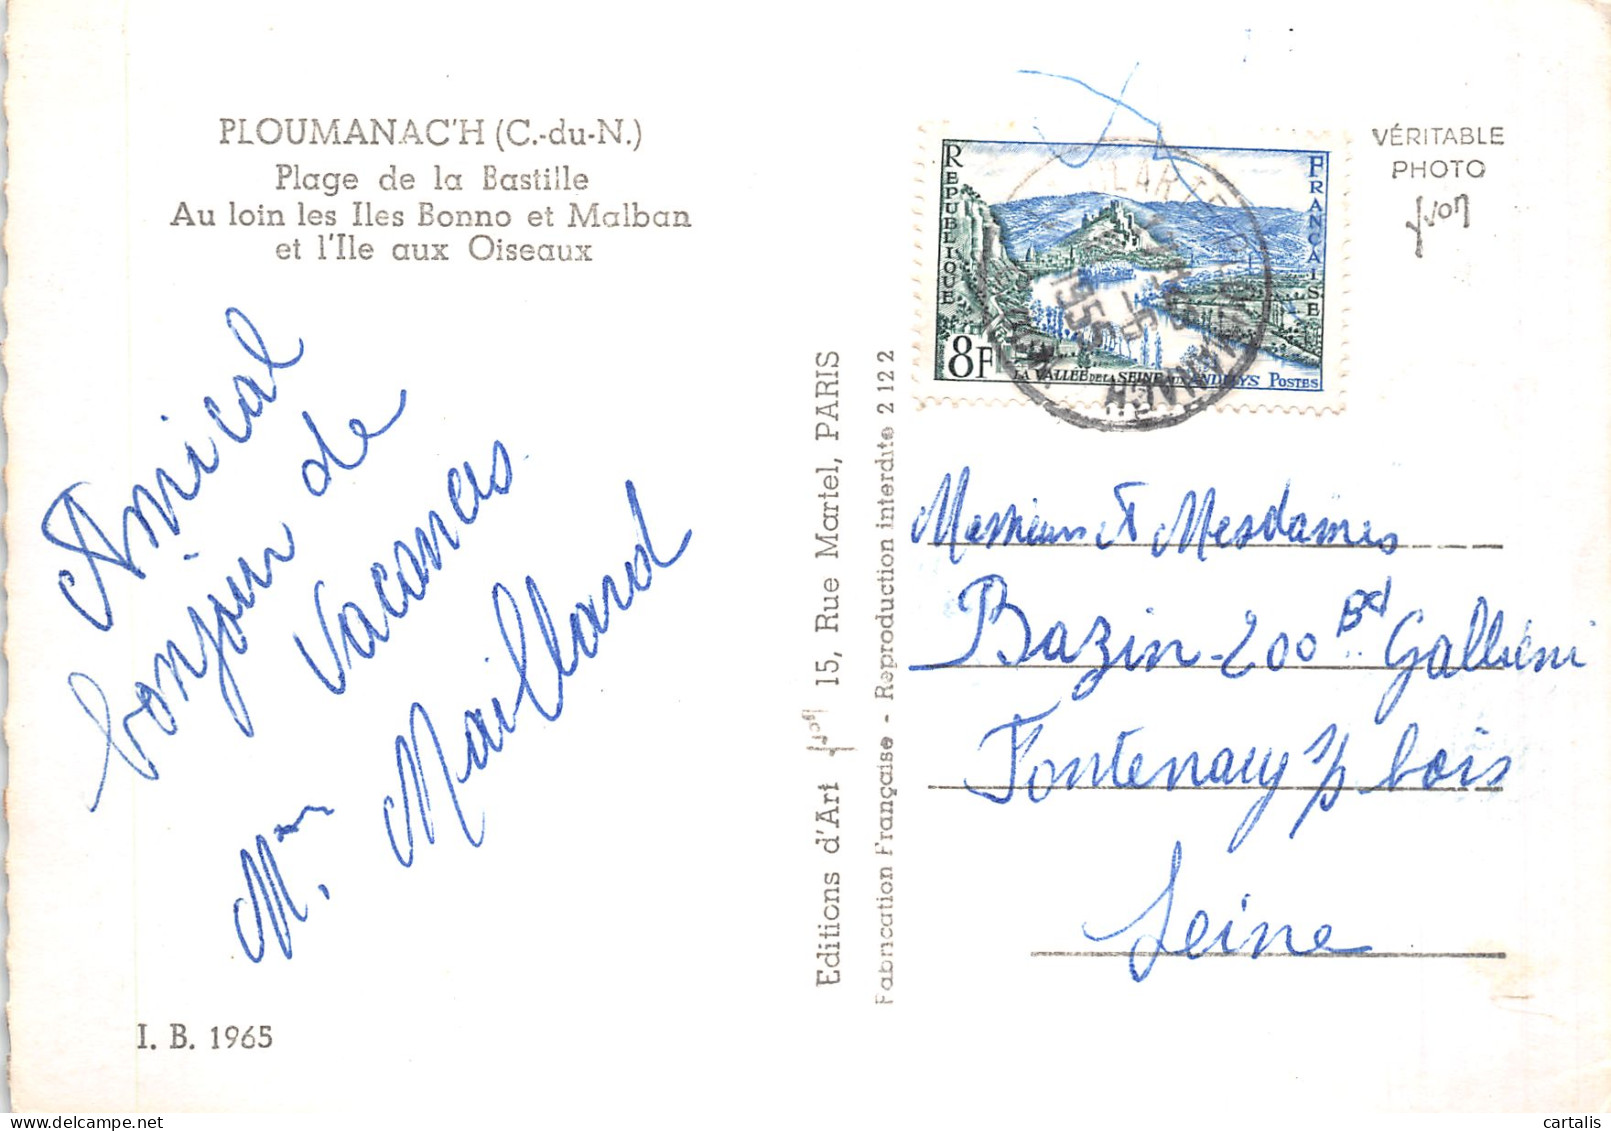 PLOUMANAC'H (C.-du-N.)
Plage de la Bastille
Au loin les Iles Bonno et Malban
et l'Ile aux Oiseaux
Amical
bonjour de
Vacances
Mme. Maillard
I. B. 1965
Editions d'Art Yvon 15, Rue Martel, PARIS
Fabrication Française - Reproduction interdite 2 122
REPUBLIQUE
FRANCAISE
8F
LA VALLÉE DE LA SEINE AUX ANDELYS POSTES
1955
VÉRITABLE
PHOTO
Yvon
Messieurs et Mesdames
Bazin - 200 Bd Galliéni
Fontenay s/s bois
Seine
cartalis